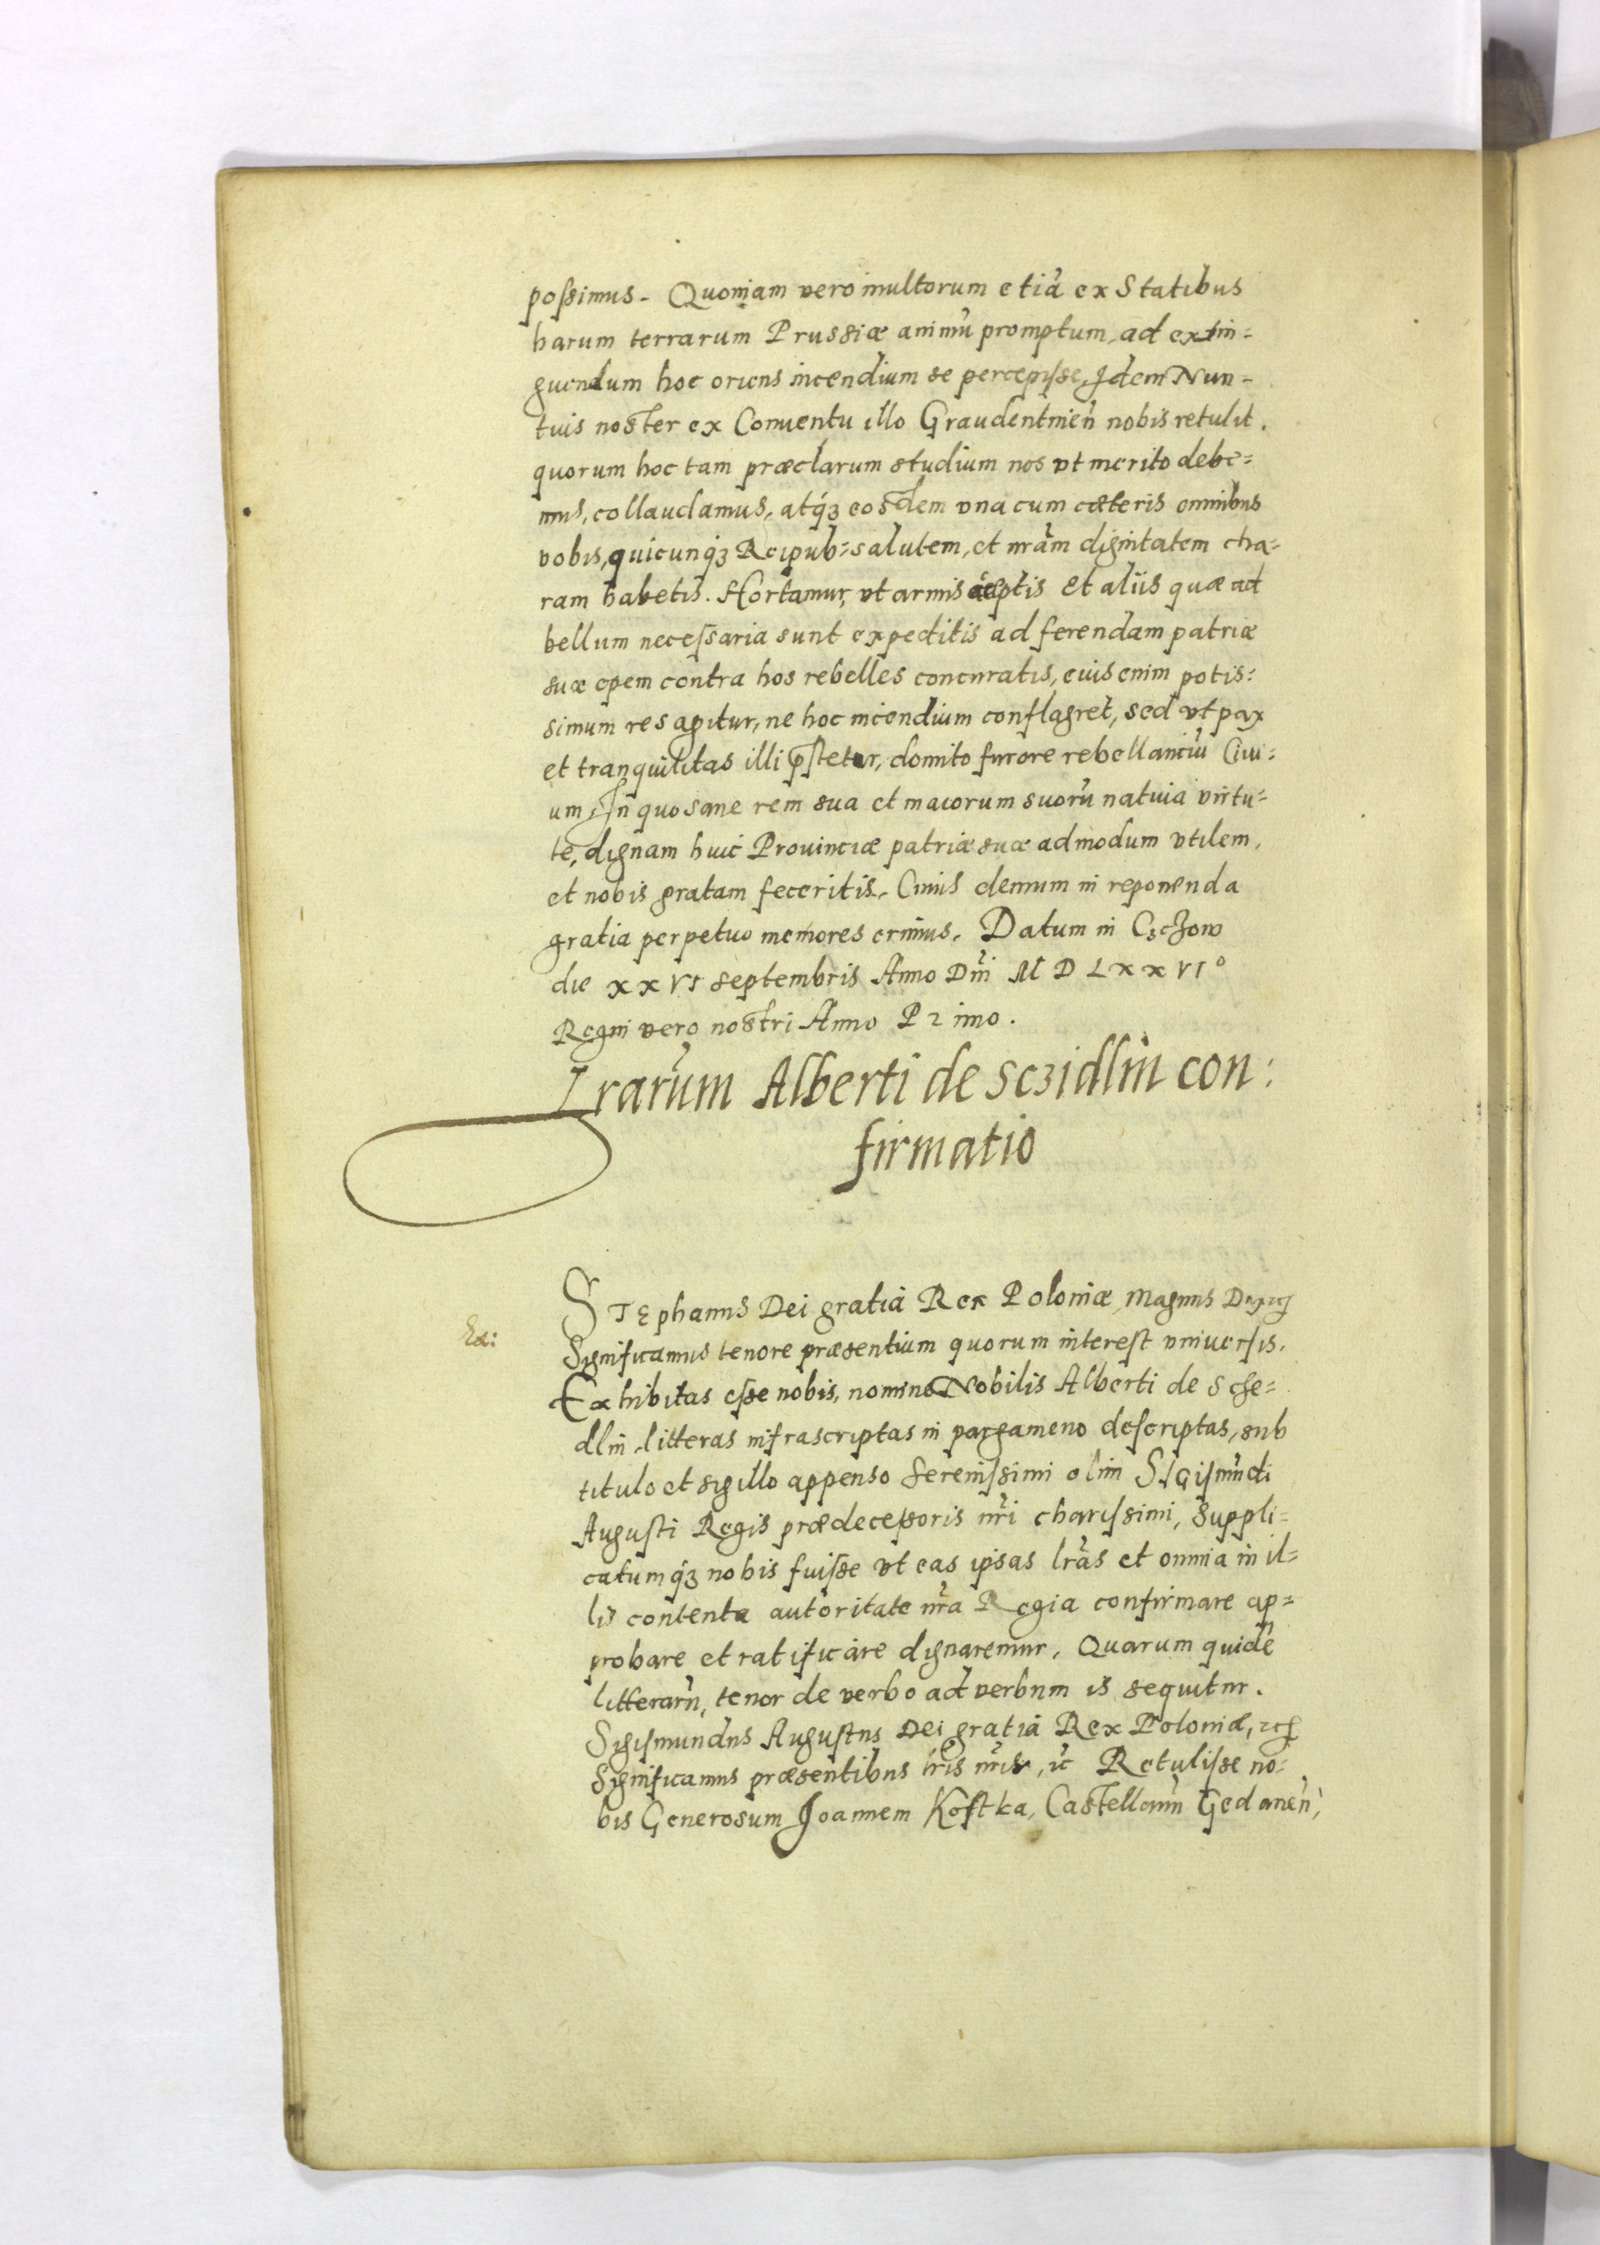 possimus. Quoniam vero multorum etiā ex Statibus
harum terrarum Prussiæ animū promptum, ad extin=
guendum hoc oriens incendium se percepisse, Idem Nun-
tius noster ex Conventu illo Graudentinen̄ nobis retulit.
quorum hoc tam præclarum studium nos vt merito debe=
mus, collaudamus, atq́ꝫ eosdem vna cum cæteris omnibus
vobis, quicunq́ꝫ Reipub: salutem, et nr̄am dignitatem cha=
ram habetis. Hortamur, vt armis aeptis et aliis quæ ad
bellum necessaria sunt expeditis ad ferendam patriæ
suæ opem contra hos rebelles concurratis, eius enim potis:
simum res agitur, ne hoc incendium conflagret, sed vt pax
et tranquilitas illi pstetur, domito furore rebellantiū Ciui:
um, In quo sane rem sua et maiorum suorū natiua virtu=
te, dignam huic Prouinciæ patriæ suæ admodum vtilem,
et nobis gratam feceritis. Cuius demum in reponenda
gratia perpetuo memores erimus. Datum in Czchow
die xxVI septembris Anno Dn̄i M D L x x VI°
Regni vero nostri Anno Primo.
Lrarūm Alberti de Sczidlin con:
firmatio
STEphanus Dei gratia Rex Poloniæ, Magnus Dux
Ex:
Significamus tenore præsentium quorum interest vniuersis.
Exhibitas esse nobis, nomine Nobilis Alberti de Scze=
dlin, litteras infrascriptas in pargameno descriptas, sub
titulo et sigillo appenso Serenissimi olim SIGismūdi
Augusti Regis prædecessoris nr̄i charissimi, Suppli=
catumq́ꝫ nobis fuisse vt eas ipsas lr̄as et omnia in il=
lis contenta autoritate nr̄a Regia confirmare ap=
probare et ratificare dignaremur. Quarum quidē
litterarū, tenor de verbo ad verbum is sequitur.
Sigismundus Augustus Dei gratia Rex Poloniæ,
Significamus præsentibus lr̄is nr̄is, Retulisse no=
bis Generosum Joannem Kostka, Castellanū Gedanen̄,